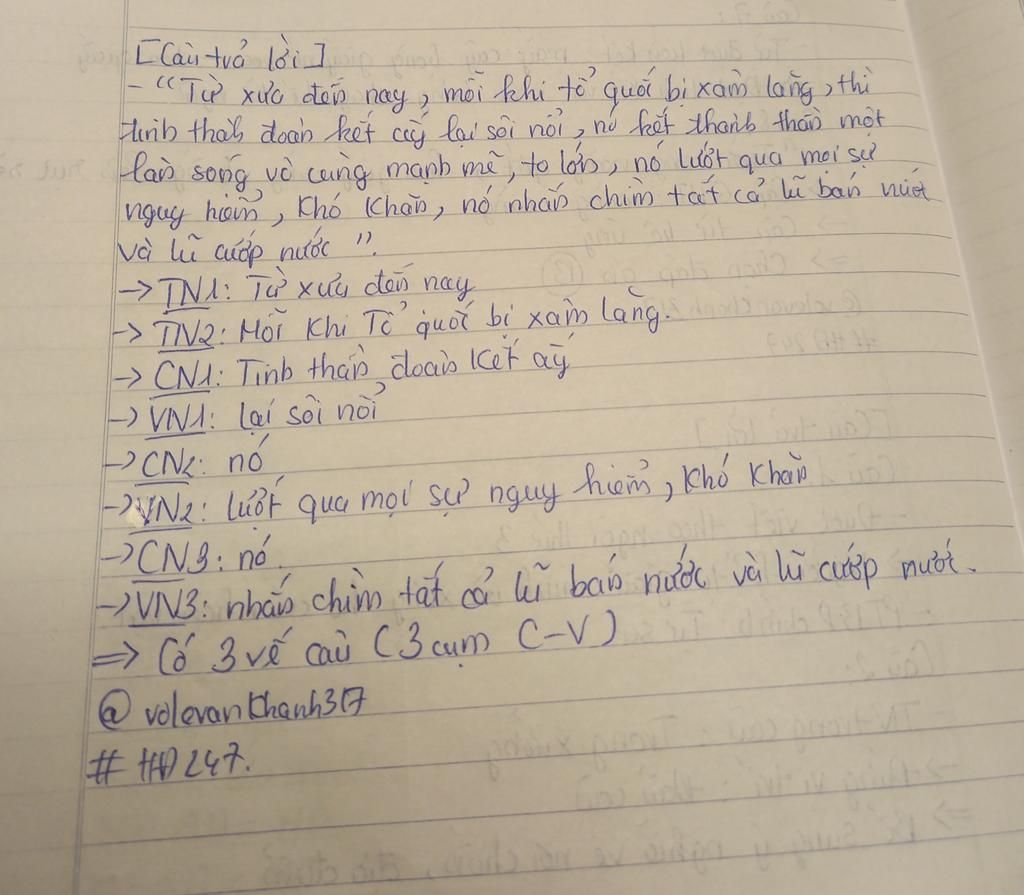 [Câu trả lời]
- "Từ xưa đến nay, mỗi khi tổ quốc bị xâm lăng, thì
tinh thần đoàn kết ấy lại sôi nổi, nó kết thành thần một
làn sóng vô cùng mạnh mẽ, to lớn, nó lướt qua mọi sự
nguy hiểm, khó khăn, nó nhấn chìm tất cả lũ bán nước
và lũ cướp nước".
→ TN1: Từ xưa đến nay
→ TN2: Mỗi khi Tổ quốc bị xâm lăng.
→ CN1: Tinh thần đoàn kết ấy
→ VN1: lại sôi nổi
→ CN2: nó
→ VN2: lướt qua mọi sự nguy hiểm, khó khăn
→ CN3: nó.
→ VN3: nhấn chìm tất cả lũ bán nước và lũ cướp nước.
=> Có 3 vế câu (3 cụm C-V)
@volevankhanh317
# HĐ247.